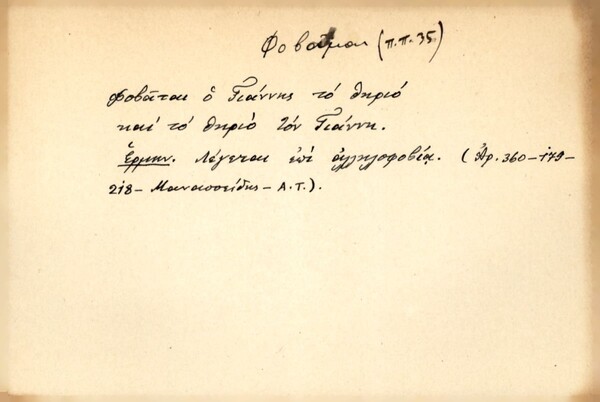 Φοβοῦμαι (π.π. 35)
Φοβᾶται ὁ Γιάννης τό θηριό
καί τό θηριό τόν Γιάννη.
Ἑρμην. Λέγεται ἐπί ἀλληλοφοβίας. (Ἀρ. 360-179-
218- Μανασσείδης - Α.Τ.).